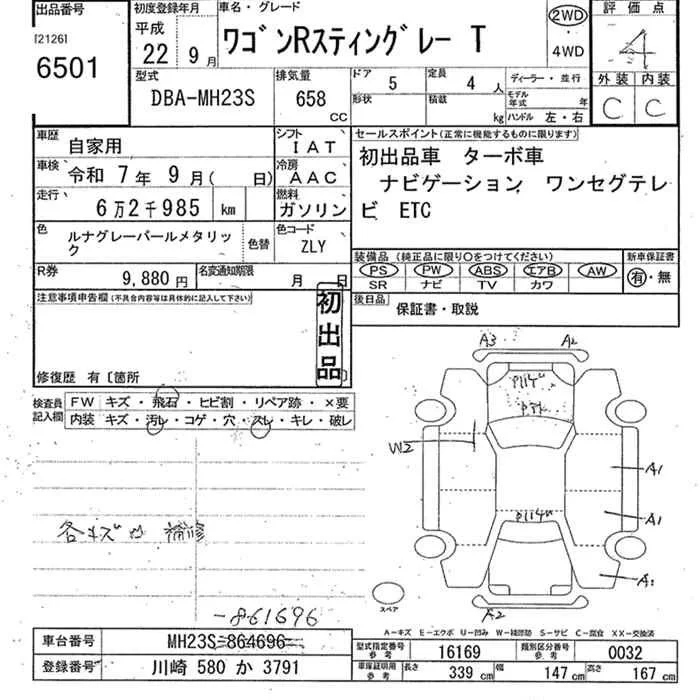 出品番号
[2126]
6501
初度登録年月
平成
22 年 9 月
車名・グレード
ワゴンRスティングレー T
2WD
・
4WD
評価点
4
外装 内装
C C
型式
DBA-MH23S
排気量
658
CC
ドア
5
定員
4 人
形状
積載
kg
ディーラー・並行
モデル年式 年
ハンドル 左・右
車歴
自家用
シフト
IAT
車検
令和 7 年 9 月( 日)
冷房
AAC
走行
6万2千985 km
燃料
ガソリン
色
ルナグレーパールメタリック
色替
色コード
ZLY
R券
9,880 円
名変通知期限
月 日
セールスポイント(正常に機能するものに限ります)
初出品車 ターボ車
ナビゲーション ワンセグテレ
ビ ETC
装備品(純正品に限り○をつけてください)
新車保証書
PS PW ABS エアB AW
SR ナビ TV カワ
有・無
後日品
保証書・取説
注意事項申告欄(不具合内容等は具体的に記入して下さい)
初出品
修復歴 有〔箇所 〕
検査員記入欄
FW キズ・飛石・ヒビ割・リペア跡・×要
内装 キズ・汚レ・コゲ・穴・スレ・キレ・破レ
A3 A2
W2
A1
A1
A2
スペア
各キズ 補修
-861696
A-キズ E-エクボ U-凹み W-補修跡 S-サビ C-腐食 XX-交換済
車台番号
MH23S-864696-
登録番号
川崎 580 か 3791
型式指定番号
参考
16169
類別区分番号
参考
0032
車庫証明用
参考
長さ 339 cm
幅 147 cm
高さ 167 cm